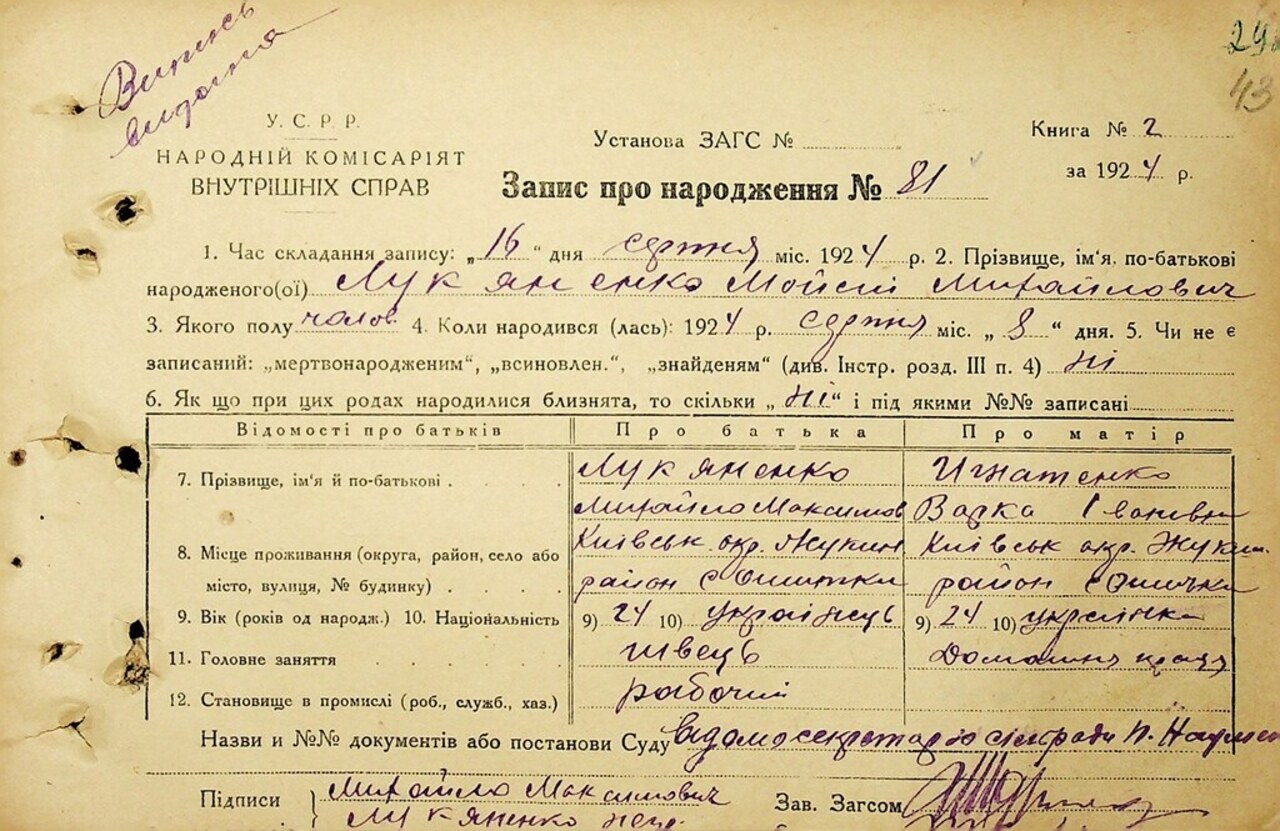 Випись
видана
29
43
У. С. Р. Р.
НАРОДНІЙ КОМІСАРІЯТ
ВНУТРІШНІХ СПРАВ
Установа ЗАГС №
Книга № 2
за 1924 р.
Запис про народження № 81
1. Час складання запису: „16“ дня серпня міс. 1924 р. 2. Прізвище, ім'я, по-батькові
народженого(ої) Лукяненко Мойсій Михайлович
3. Якого полу чолов. 4. Коли народився (лась): 1924 р. серпня міс. „8“ дня. 5. Чи не є
записаний: „мертвонародженим“, „всиновлен.“, „знайденям“ (див. Інстр. розд. III п. 4) ні
6. Як що при цих родах народилися близнята, то скільки „ні“ і під якими №№ записані
Відомості про батьків Про батька Про матір
7. Прізвище, ім'я й по-батькові Лукяненко Игнатенко
Михайло Максимов Варка Івановна
8. Місце проживання (округа, район, село або Київськ окр. Жукин Київськ окр. Жукин.
місто, вулиця, № будинку) район с район с
9. Вік (років од народж.) 10. Національність 9) 24 10) українець 9) 24 10) українка
11. Головне заняття швець Домашня праця
12. Становище в промислі (роб., служб., хаз.) рабочий
Назви и №№ документів або постанови Суду відомо секретарю сільради
Підписи Михайло Максимович Зав. Загсом
Лукяненко